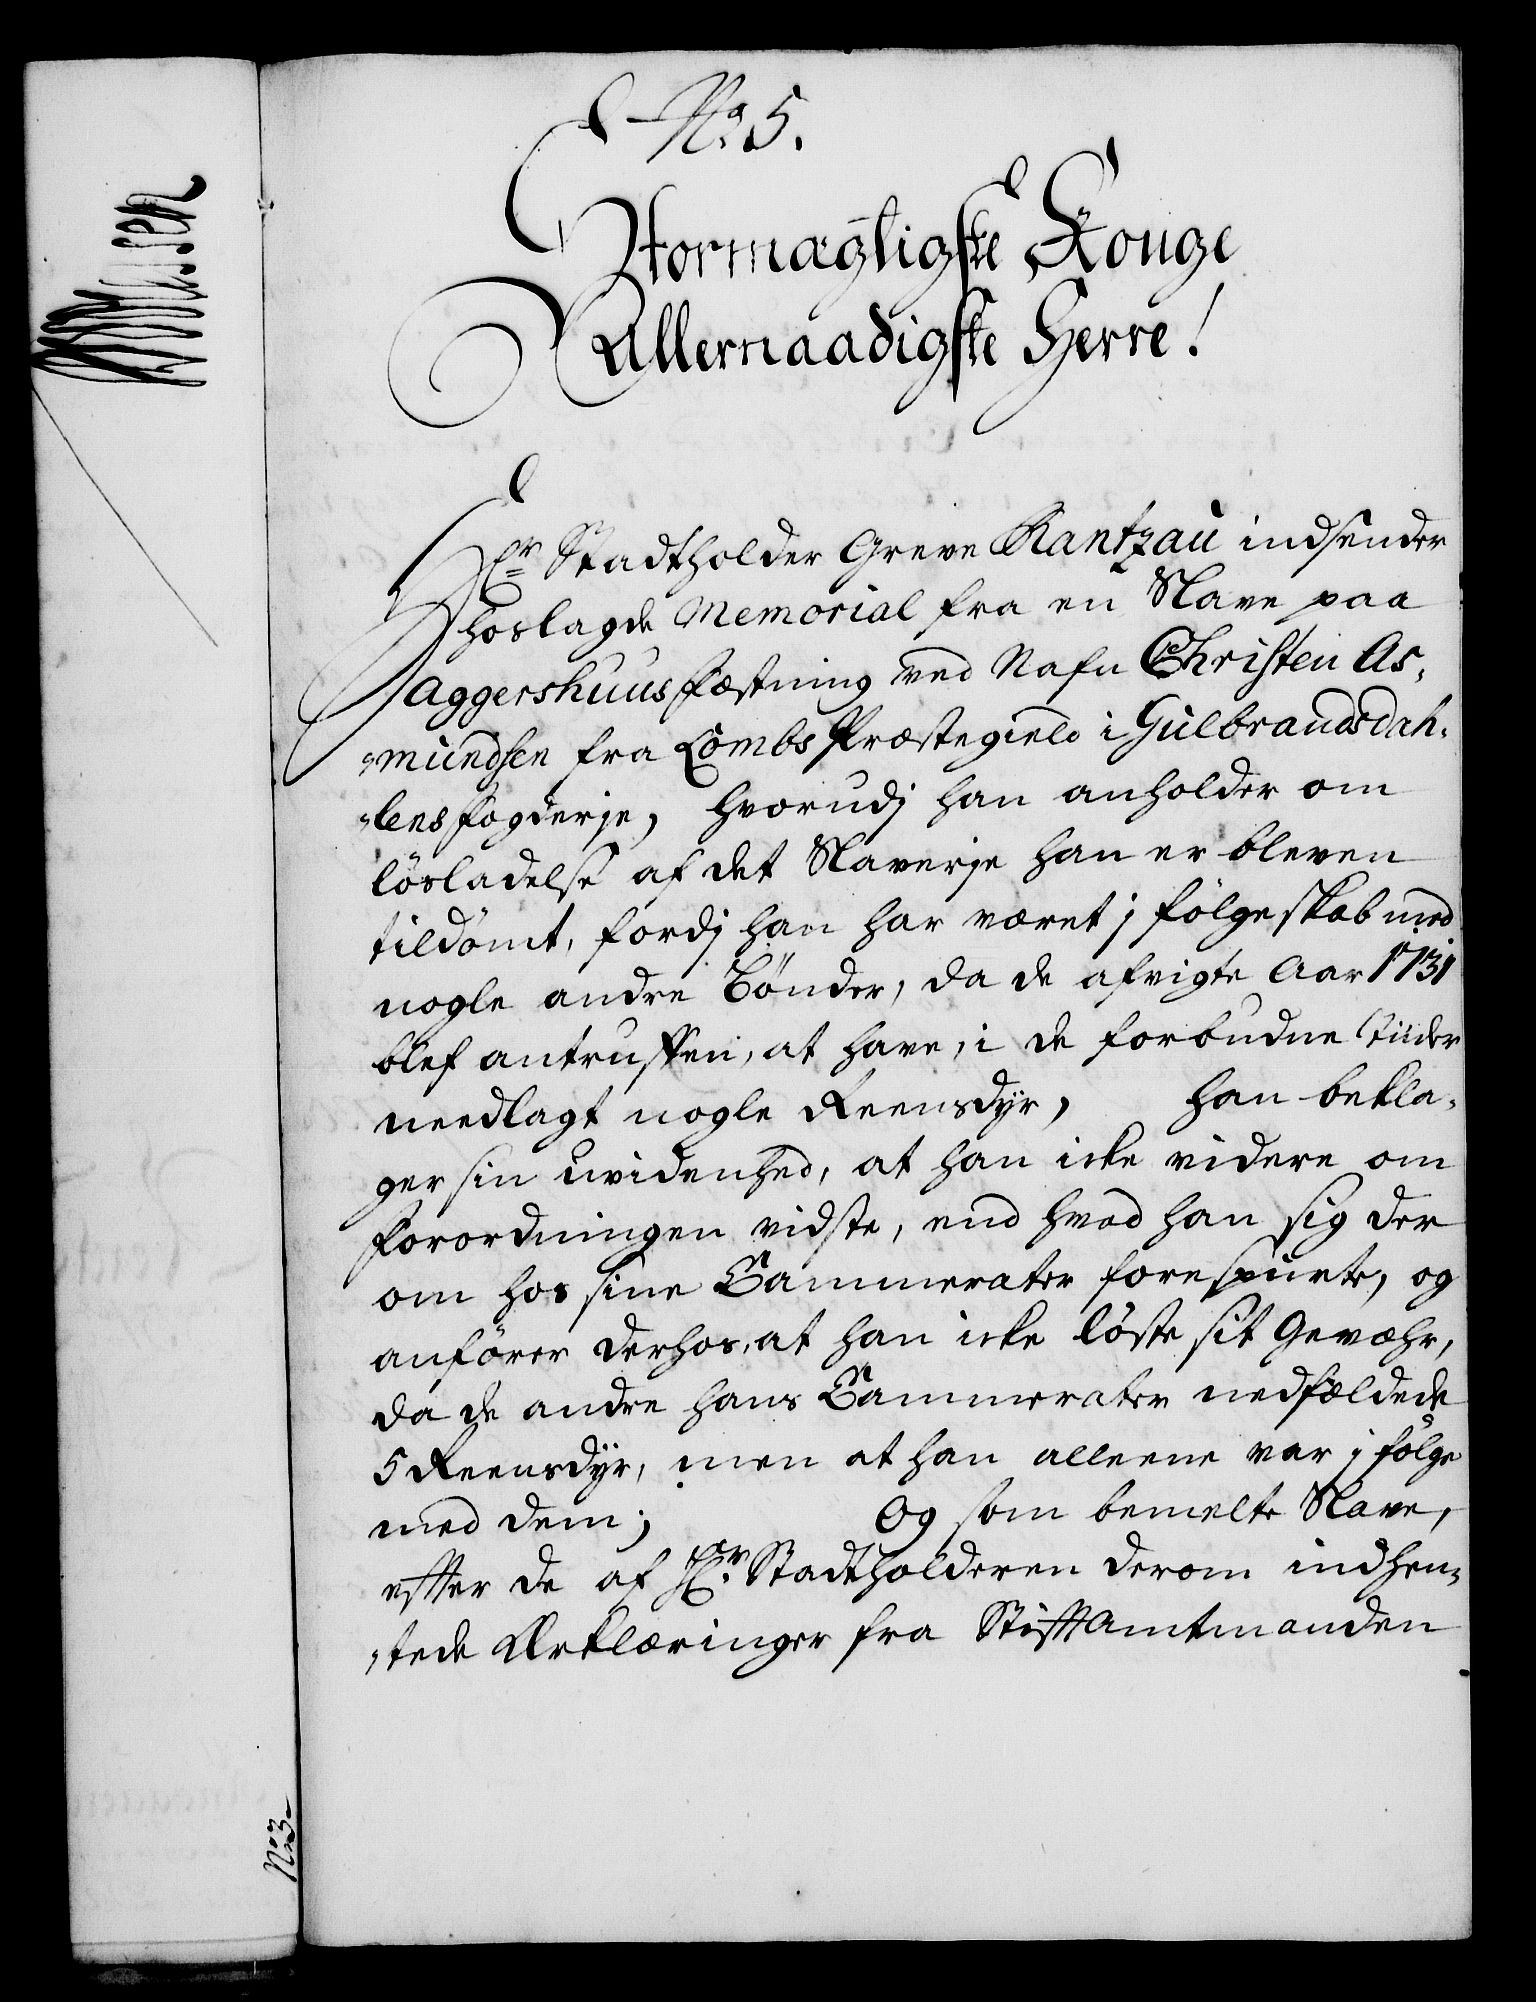 No. 5.
Stormægtigste Konge
Allernaadigste Herre!
Hr. Stadtholder Greve Rantzau indsender
hoslagde Memorial fra en Slave paa
Aggershuus Fæstning ved Nafn Christen As,
,mundsen fra Lombs Præstegield i Gulbrandsdah,
,lens Fogderje, hvorudj han anholder om
lösladelse af det Slaverje han er bleven
tildömt, fordj han har været j fölgeskab med
nogle andre Bönder, da de afvigte Aar 1731
blef antruffen, at have, i de forbudne Tiider
needlagt nogle Reensdÿr, han bekla,
ger sin uvidenhed, at han icke videre om
Forordningen vidste, end hvad han sig der
om hos sine Cammerater forespurte, og
anförer derhos, at han icke löste sit Gevæhr,
da de andre hans Cammerater nedfældede
5 Reensdÿr, men at han alleene var j fölge
med dem; Og som bemelte Slave,
efter de af Hr. Stadtholderen derom indhen,
,tede Erklæringer fra Stiftamtmanden
No 3